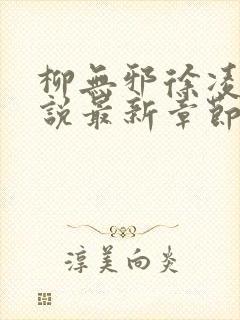 柳無邪徐凌
說最新章節
淳美向炎